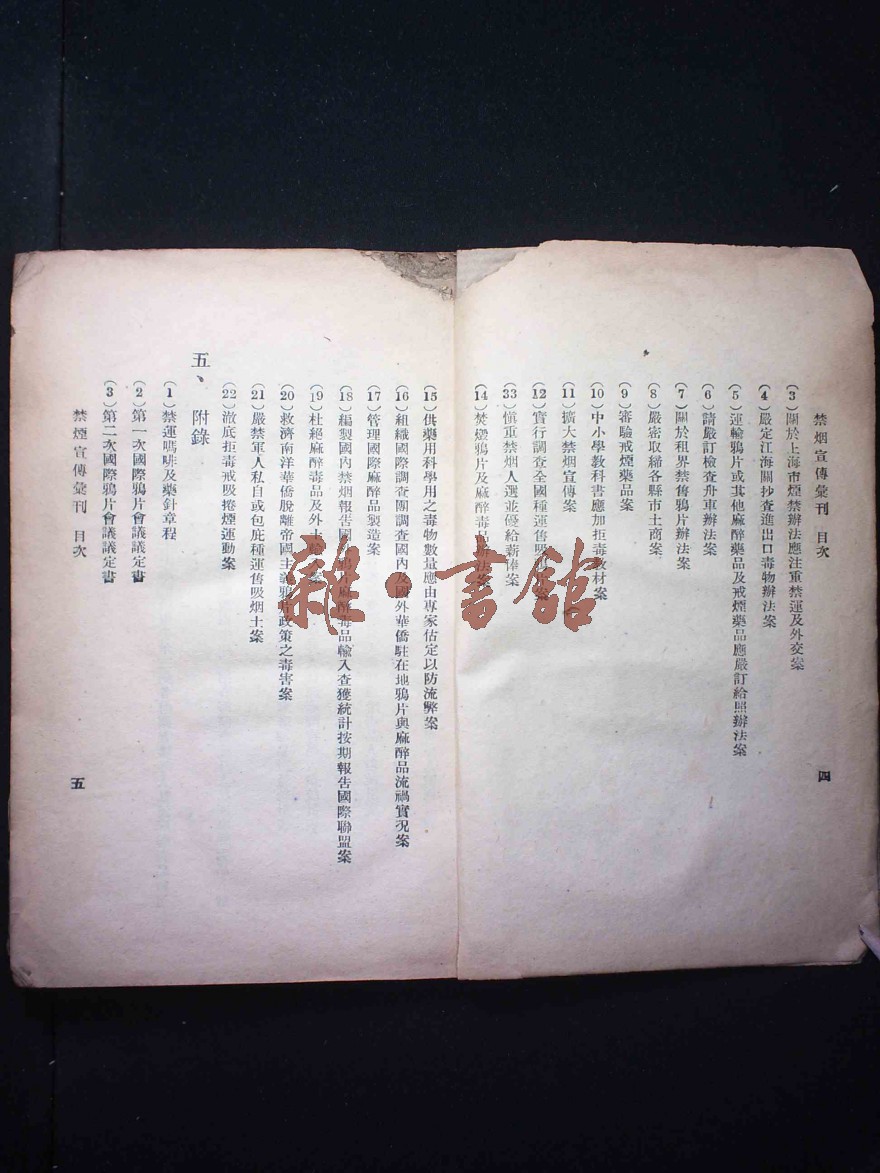 禁烟宣傳彙刊 目次
四
(3)關於上海市煙禁辦法應注重禁運及外交案
(4)嚴定江海關抄查進出口毒物辦法案
(5)運輸鴉片或其他麻醉藥品及戒煙藥品應嚴訂給照辦法案
(6)請嚴訂檢查舟車辦法案
(7)關於租界禁售鴉片辦法案
(8)嚴密取締各縣市土商案
(9)審驗戒煙藥品案
(10)中小學教科書應加拒毒教材案
(11)擴大禁烟宣傳案
(12)實行調查全國種運售吸 案
(33)愼重禁烟人選並優給薪俸案
(14)焚燬鴉片及麻醉毒 辦法案
(15)供藥用科學用之毒物數量應由專家估定以防流弊案
(16)組織國際調查團調查國內及國外華僑駐在地鴉片與麻醉品流禍實况案
(17)管理國際麻醉品製造案
(18)編製國內禁烟報告國 鴉片麻醉毒品輸入查獲統計按期報告國際聯盟案
(19)杜絕麻醉毒品及外土輸入案
(20)救濟南洋華僑脫離帝國主義鴉片政策之毒害案
(21)嚴禁軍人私自或包庇種運售吸烟土案
(22)澈底拒毒戒吸捲煙運動案
五、附錄
(1)禁運嗎啡及藥針章程
(2)第一次國際鴉片會議議定書
(3)第二次國際鴉片會議議定書
禁煙宣傳彙刊 目次
五
雜·書館